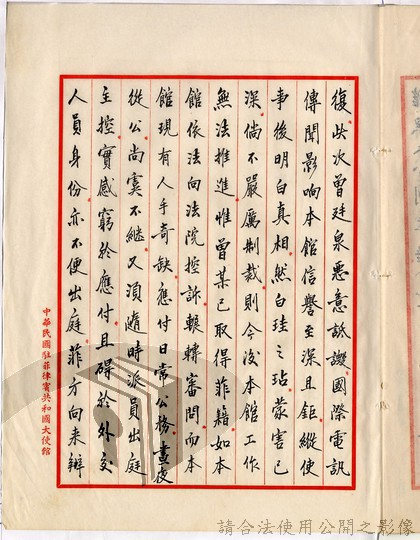 復此次曾廷泉惡意詆譭國際電訊
傳聞影响本館信譽至深且鉅縱使
事後明白真相然白珪之玷蒙害已
深倘不嚴厲制裁則今後本館工作
無法推進惟曾某已取得菲籍如本
館依法向法院控訴輾轉審問而本
館現有人手奇缺應付日常公務晝夜
從公尚虞不繼又須隨時派員出庭
主控實感窮於應付且礙於外交
人員身份亦不便出庭菲方向來辦
中華民國駐菲律賓共和國大使館
請合法使用公開之影像